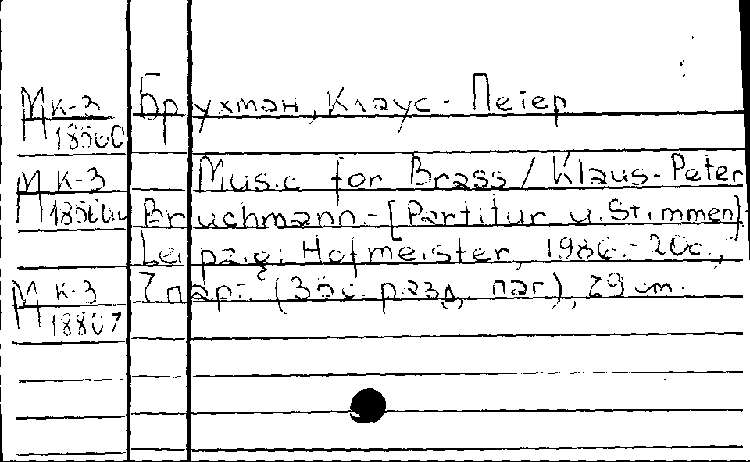 Брухман, Клаус-Петер
М к-3
18560
Music for Brass / Klaus-Peter
М к-3
Bruchmann.-[Partitur u. Stimmen].
Leipzig: Hofmeister, 1986.-20с.,
7 парт. (35с. разд. паг.), 29 cm.
М к-3
18807